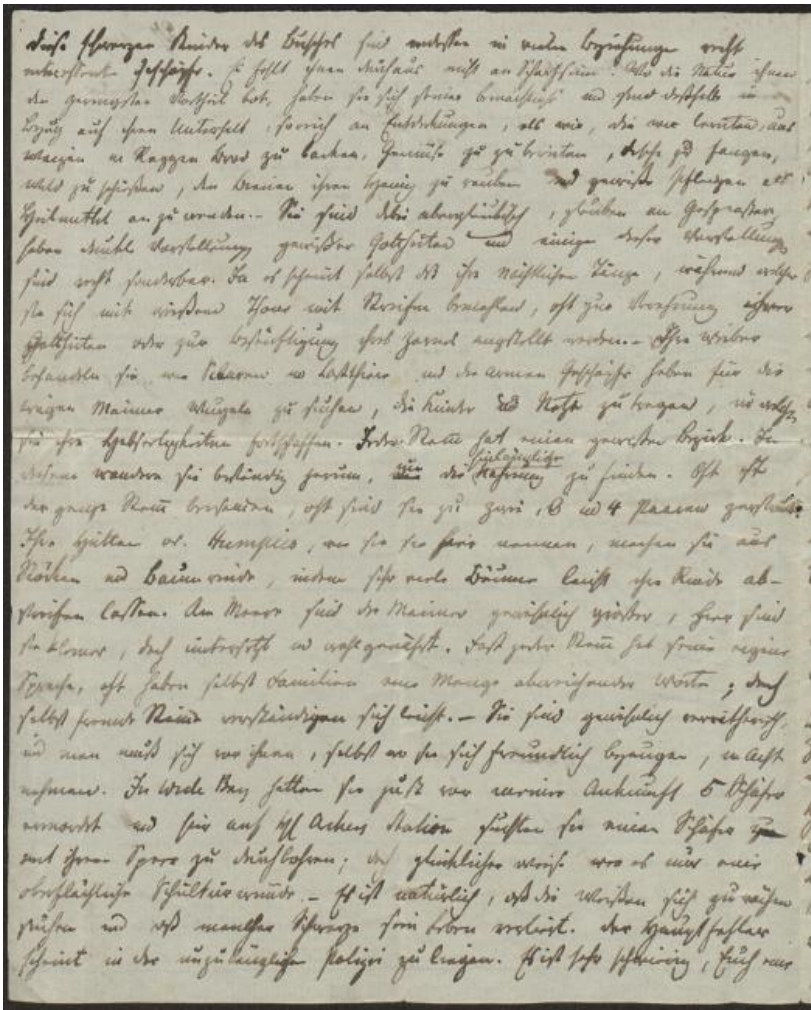 Diese schwarzen Kinder des Busches sind indessen in vielen Beziehungen recht
interessante Geschöpfe. Es fehlt ihnen durchaus nicht an Scharfsinn. Wo die Natur ihnen
den geringsten Vortheil bot, haben sie sich seiner bemächtigt und sind deßhalb in
Bezug auf ihren Unterhalt, so reich an Entdeckungen, als wir, die wir lernten, aus
Waizen u Roggen Brod zu backen, Gemüse zu zubereiten, Fische zu fangen,
Wild zu schießen, den Bienen ihren Honig zu rauben und gewisse Pflanzen als
Heilmittel an zu wenden.- Sie sind dabei abergläubisch, glauben an Gespenster,
haben dunkle Vorstellungen gewisser Gottheiten und einige dieser Vorstellungen
sind recht sonderbar. Ja es scheint selbst daß ihre nächtlichen Tänze, während welcher
sie sich mit weißem Thone mit Streifen bemahlen, oft zur Verehrung ihrer
Gottheiten oder zur Besänftigung ihres Zornes angestellt werden.- Ihre Weiber
behandeln sie wie Sclaven u Lastthiere und die armen Geschöpfe haben für die
trägen Männer Wurzeln zu suchen, die Kinder und Netze zu tragen, in welchen
sie ihre Habseligkeiten fortschaffen. Jeder Stam̄ hat einen gewissen Bezirk. In
diesem wandern sie beständig herum, um die hinlängliche Nahrung zu finden. Oft ist
der ganze Stam̄ beisammen, oft sind sie zu zwei, 3 und 4 Paaren zerstreut.
Ihre Hütten or. Humpies, wie sie sie hier nennen, machen sie aus
Stöcken und Baumrinde, indem sehr viele Bäume leicht ihre Rinde ab-
streifen lassen. Am Meere sind die Männer gewöhnlich größer, hier sind
sie kleiner, doch untersetzt u wohlgenährt. Fast jeder Stam̄ hat seine eigene
Sprache, oft haben selbst Familien eine Menge abweichender Worte; doch
selbst fremde Stämme verständigen sich leicht.- Sie sind gewöhnlich verrätherisch,
und man muß sich vor ihnen, selbst wo sie sich freundlich bezeugen, in Acht
nehmen. In Wide Bay hatten sie just vor meiner Ankunft 5 Schäfer
ermordet und hier auf Station suchten sie einen Schäfer
mit ihrem Speer zu durchbohren; doch glücklicher weise war es nur eine
oberflächliche Schulterwunde.- Es ist natürlich, daß die Weißen sich zu rächen
suchen und daß mancher Schwarze sein Leben verliert. Der Hauptfehler
scheint in der unzulänglichen Polizei zu liegen. Es ist sehr schwierig, Euch eine